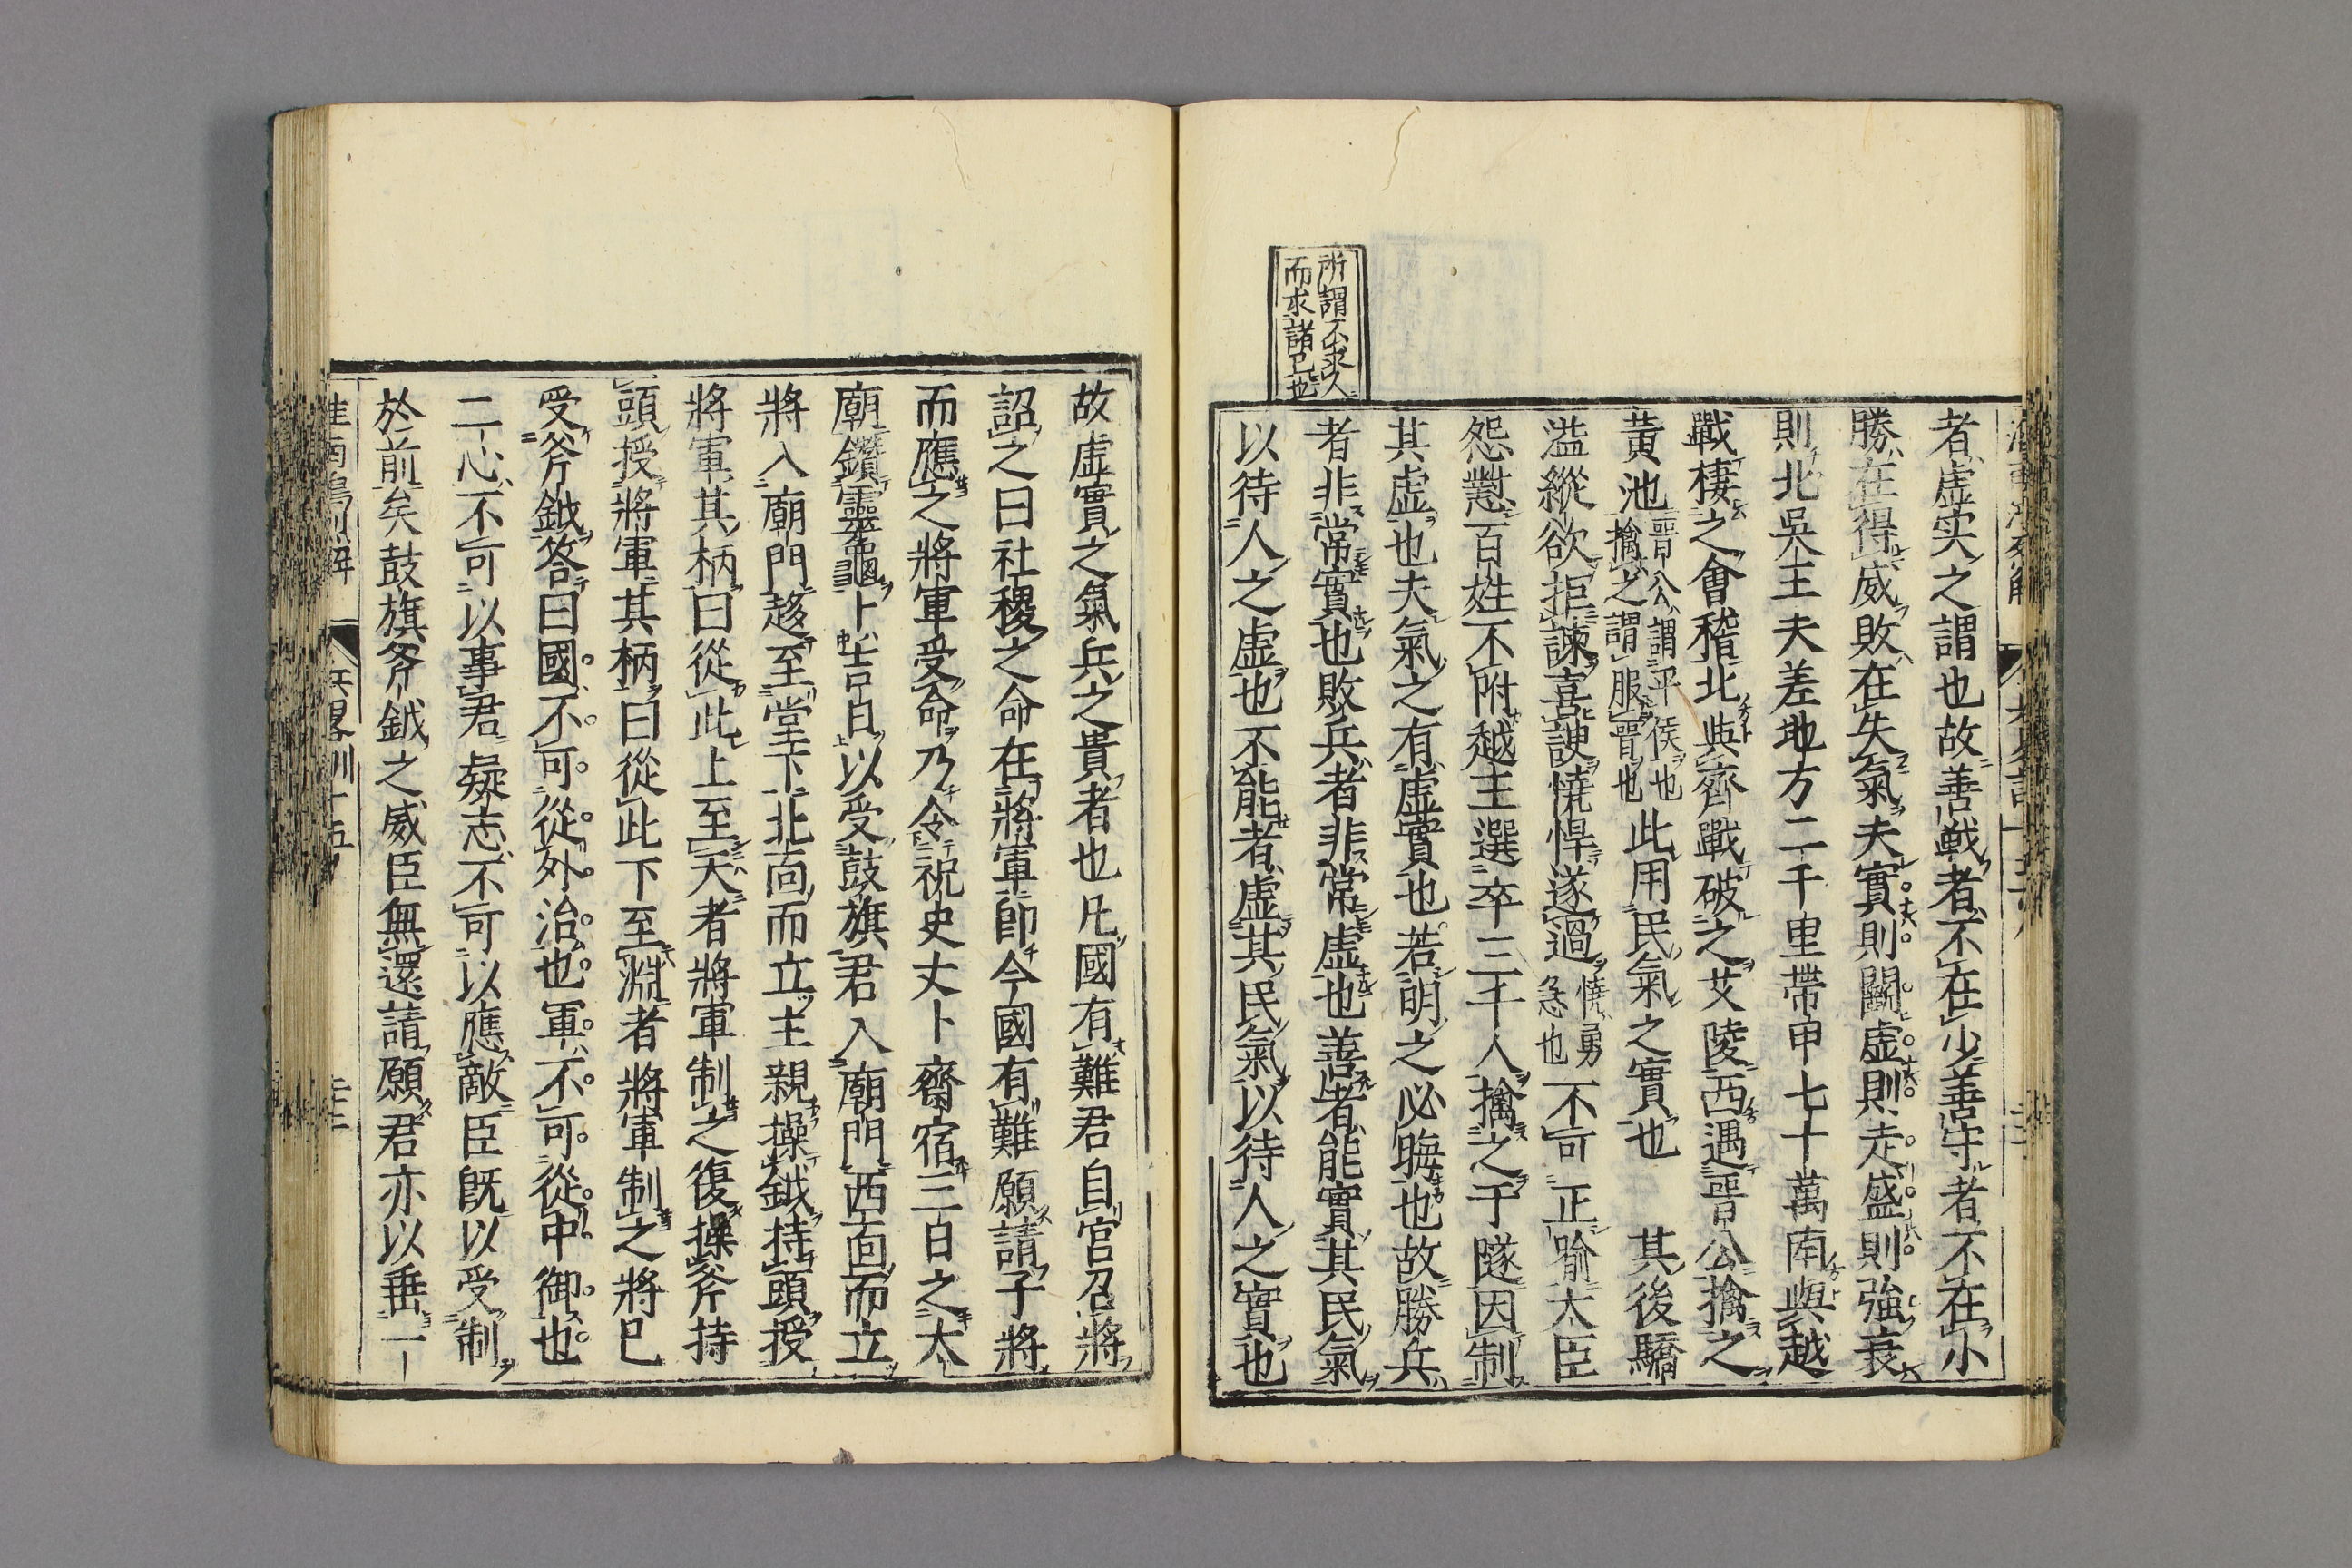 所謂不求人
而求諸己也
者虚实之謂也故善戦者不在少善守者不在小
勝在得威敗在失氣夫實則鬭虚則走盛則強衰
則北吳王夫差地方二千里帶甲七十萬南與越
戰棲之會稽北與齊戰破之艾陵西遇晉公擒之
黄池晉公謂平侯也擒之謂服晉也此用民氣之實也其後驕
溢縱欲拒諫喜諛憢悍遂過憢勇急也不可正喻大臣
怨懟百姓不附越王選卒三千人擒之于隧因制
其虚也夫氣之有虚實也若明之必晦也故勝兵
者非常實也敗兵者非常虚也善者能實其民氣
以待人之虚也不能者虚其民氣以待人之實也
故虚實之氣兵之貴者也凡國有難君自宮召將
詔之曰社稷之命在將軍即今國有難願請子將
而應之將軍受命乃令祝史太卜齋宿三日之太
廟鑽靈龜卜吉日以受鼓旗君入廟門西面而立
將入廟門趍至堂下北面而立主親操鉞持頭授
將軍其柄曰從此上至天者將軍制之復操斧持
頭授將軍其柄曰從此下至淵者將軍制之將已
受斧鉞答曰國不可從外治也軍不可從中御也
二心不可以事君疑志不可以應敵臣既以受制
於前矣鼓旗斧鉞之威臣無還請願君亦以垂一